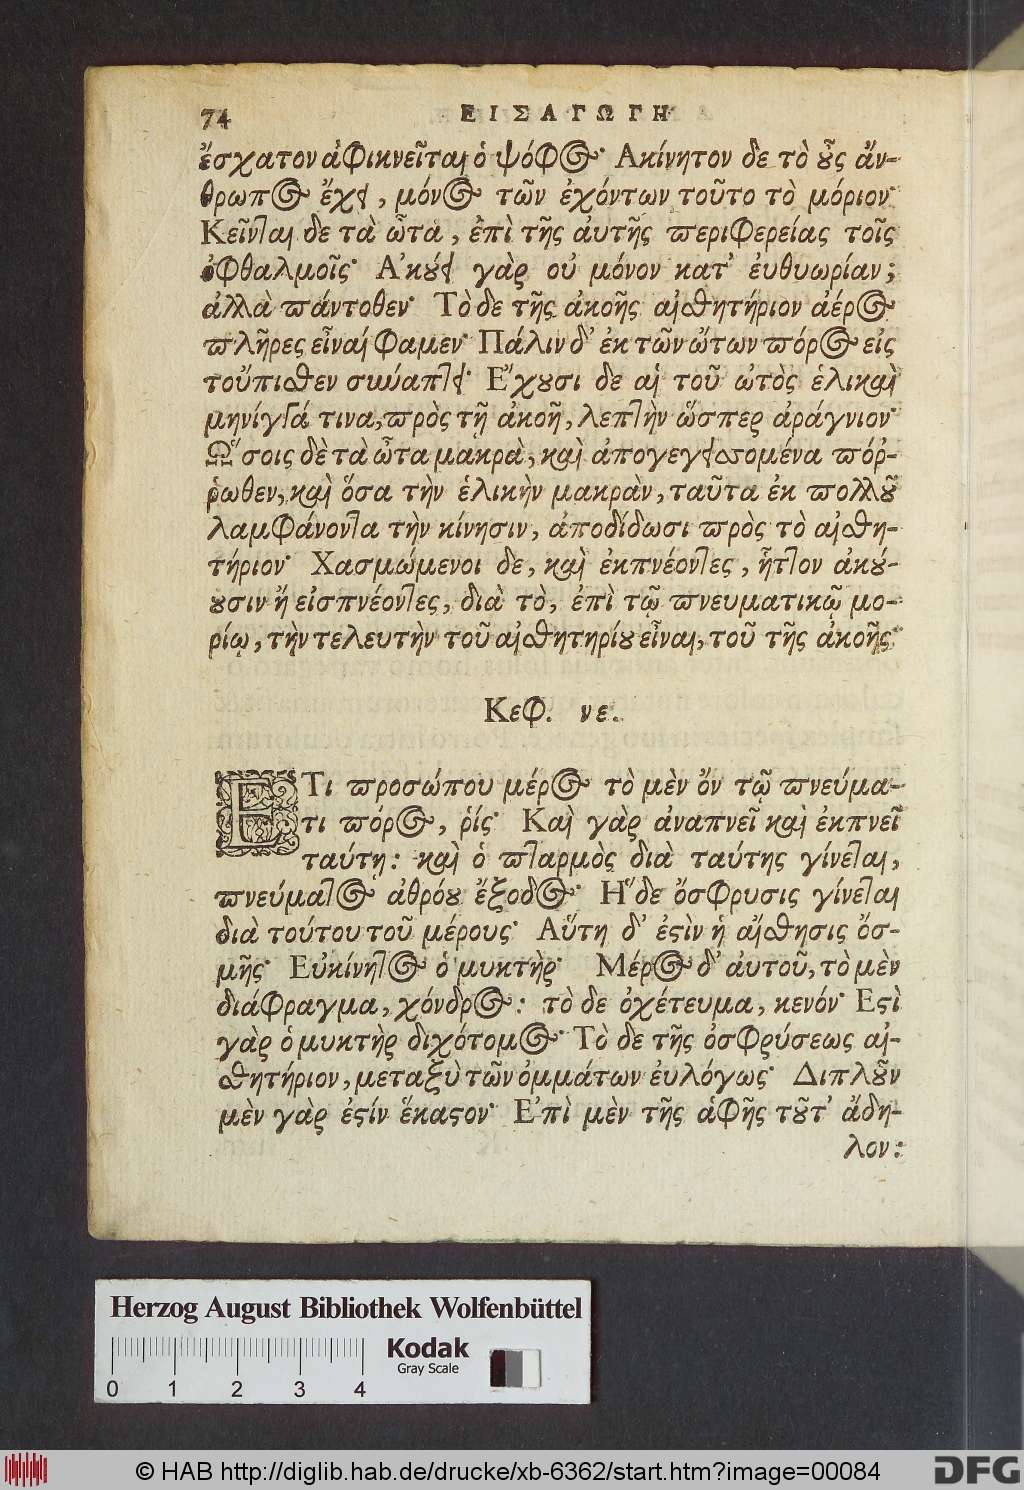 74 ΕΙΣΑΓΩΓΗ
ἔσχατον ἀφικνεῖται ὁ ψόφος· Ακίνητον δε τὸ οὖς ἄν-
θρωπος ἔχει, μόνος τῶν ἐχόντων τοῦτο τὸ μόριον·
Κεῖνται δε τὰ ὦτα, ἐπὶ τῆς ἀυτῆς περιφερείας τοῖς
ὀφθαλμοῖς· Α᾽κούει γὰρ οὐ μόνον κατ᾽ ἐυθυωρίαν;
ἀλλὰ πάντοθεν· Τὸ δε τῆς ἀκοῆς αἰσθητήριον ἀέρος
πλῆρες εἶναί φαμεν· Πάλιν δ᾽ ἐκ τῶν ὤτων πόρος εἰς
τοὔπισθεν συνάπτει· Ε῎χουσι δε αἱ τοῦ ὠτὸς ἑλικαὶ
μηνίγγά τινα, πρὸς τῇ ἀκοῇ, λεπτὴν ὥσπερ ἀράγνιον·
Ω῞σοις δὲ τὰ ὦτα μακρὰ, καὶ ἀπογεγεισομένα πόῤ-
ῥωθεν, καὶ ὅσα τὴν ἑλικὴν μακρὰν, ταῦτα ἐκ πολλοῦ
λαμφάνοντα τὴν κίνησιν, ἀποδίδωσι πρὸς τὸ αἰσθη-
τήριον· Χασμώμενοι δε, καὶ ἐκπνέοντες, ἧττον ἀκού-
ουσιν ἤ εἰσπνέοντες, διὰ τὸ, ἐπὶ τῷ πνευματικῷ μο-
ρίῳ, τὴν τελευτὴν τοῦ αἰσθητηρίου εἶναι, τοῦ τῆς ἀκοῆς·
Κεφ. νε.
ΕΤι προσώπου μέρος τὸ μὲν ὄν τῷ πνεύμα-
τι πόρος, ῥίς· Καὶ γὰρ ἀναπνεῖ καὶ ἐκπνεῖ
ταύτῃ: καὶ ὁ πταρμὸς διὰ ταύτης γίνεται,
πνεύματος ἀθρόου ἔξοδος· Η῞ δε ὄσφρυσις γίνεται
διὰ τούτου τοῦ μέρους· Αὕτη δ᾽ ἐστὶν ἡ αἴσθησις ὄσ-
μῆς· Εὐκίνητος ὁ μυκτὴρ· Μέρος δ᾽ ἀυτοῦ, τὸ μὲν
διάφραγμα, χόνδρος: τὸ δε ὀχέτευμα, κενόν· Εστὶ
γὰρ ὁ μυκτὴρ διχότομος· Τὸ δε τῆς ὀσφρύσεως αἰσ-
θητήριον, μεταξὺ τῶν ὀμμάτων ἐυλόγως· Διπλοῦν
μὲν γὰρ ἐστίν ἕκαστον· Ε᾽πὶ μὲν τῆς ἁφῆς τοῦτ᾽ ἄδη-
λον:
Herzog August Bibliothek Wolfenbüttel
Kodak
Gray Scale
0 1 2 3 4
© HAB http://diglib.hab.de/drucke/xb-6362/start.htm?image=00084
DFG